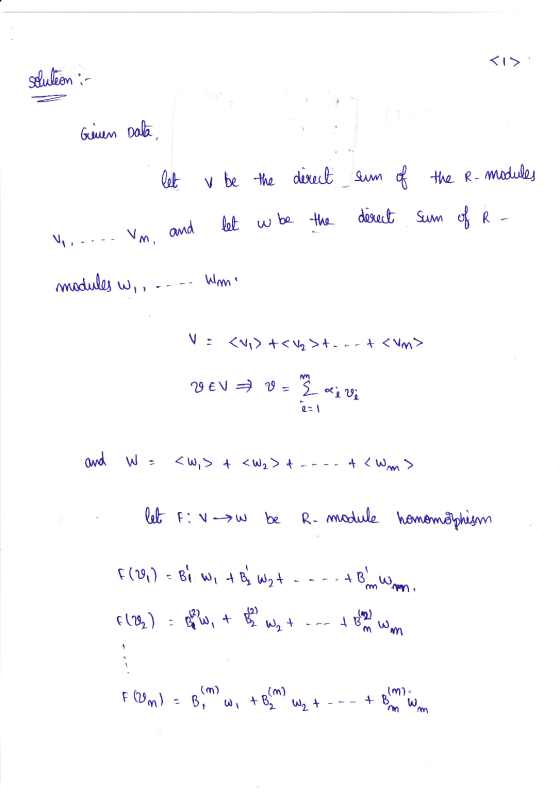 <1>
Solution :-
Given Data,
let V be the direct sum of the R-modules
V₁, .... Vm, and let W be the direct sum of R-
modules W₁, ..... Wm.
V = <V₁> + <V₂> + .... + <Vm>
v ∈ V ⇒ v = Σ_{i=1}^{m} αᵢ vᵢ
and W = <W₁> + <W₂> + ..... + <Wm>
let F: V → W be R-module homomorphism
F(v₁) = B₁' W₁ + B₂' W₂ + ..... + Bm' Wm.
F(v₂) = B₁⁽²⁾ W₁ + B₂⁽²⁾ W₂ + .... + Bm⁽²⁾ Wm
⋮
F(vm) = B₁⁽ᵐ⁾ W₁ + B₂⁽ᵐ⁾ W₂ + .... + Bm⁽ᵐ⁾ Wm